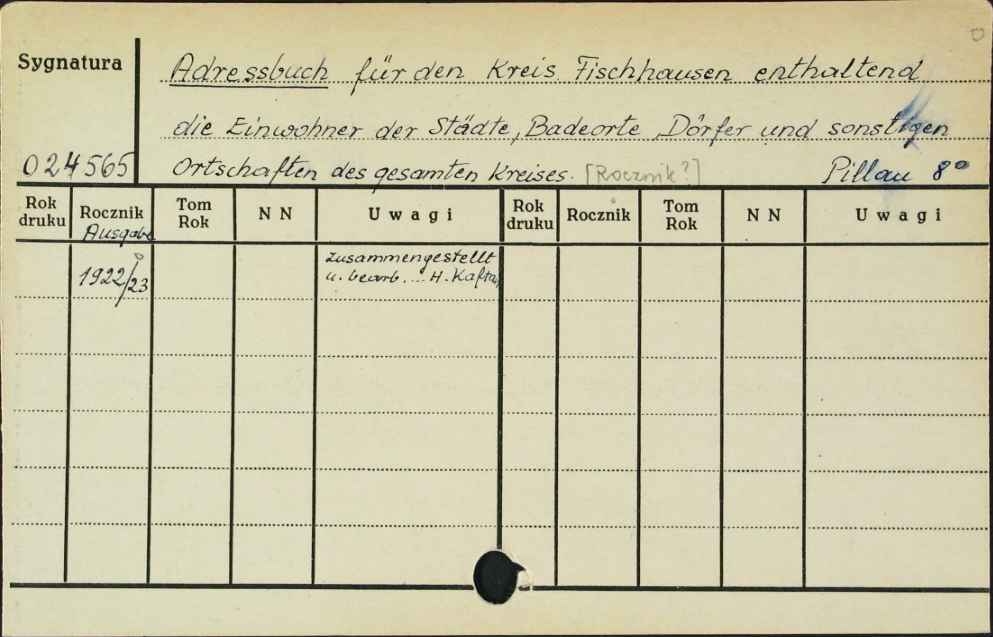 Sygnatura
Adressbuch für den Kreis Fischhausen enthaltend
die Einwohner der Städte, Badeorte, Dörfer und sonstigen
024565 Ortschaften des gesamten Kreises. [Rocznik?] Pillau 8°
Rok druku Rocznik Ausgabe Tom Rok N N Uwagi Rok druku Rocznik Tom Rok N N Uwagi
1922/23 zusammengestellt
u. bearb. ... H.